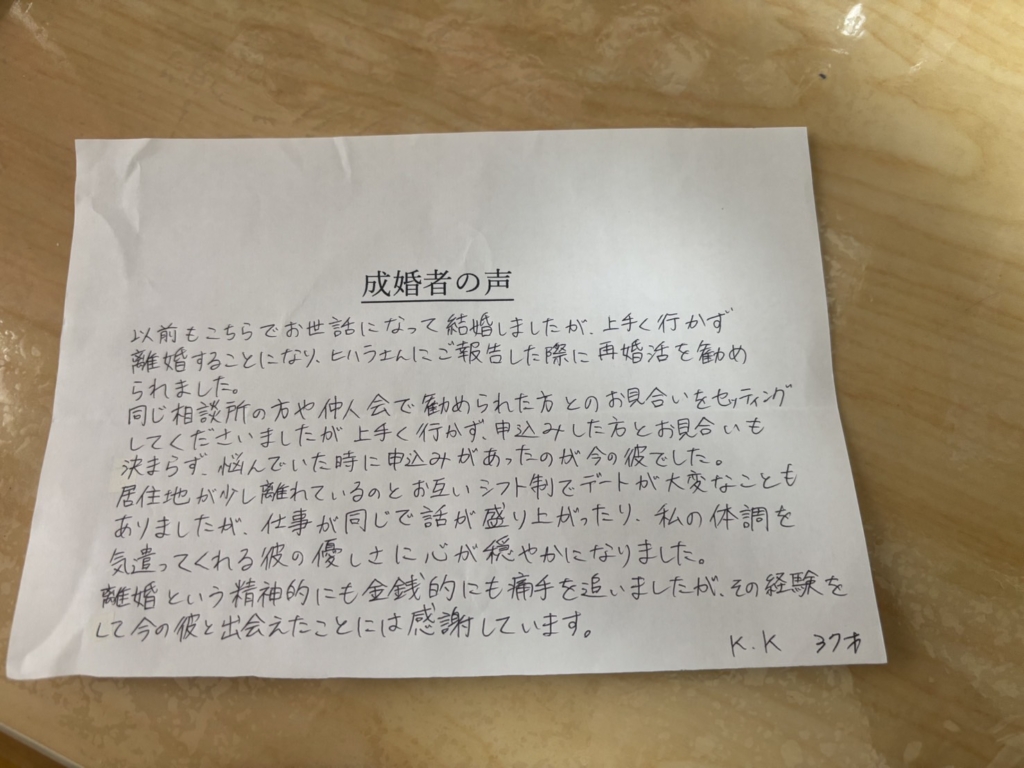 成婚者の声
以前もこちらでお世話になって結婚しましたが、上手く行かず
離婚することになり、ヒハラさんにご報告した際に再婚活を勧め
られました。
同じ相談所の方や仲人会で勧められた方とのお見合いをセッティング
してくださいましたが上手く行かず、申込みした方とお見合いも
決まらず、悩んでいた時に申込みがあったのが今の彼でした。
居住地が少し離れているのとお互いシフト制でデートが大変なことも
ありましたが、仕事が同じで話が盛り上がったり、私の体調を
気遣ってくれる彼の優しさに心が穏やかになりました。
離婚という精神的にも金銭的にも痛手を追いましたが、その経験を
して今の彼と出会えたことには感謝しています。
K.K 37才